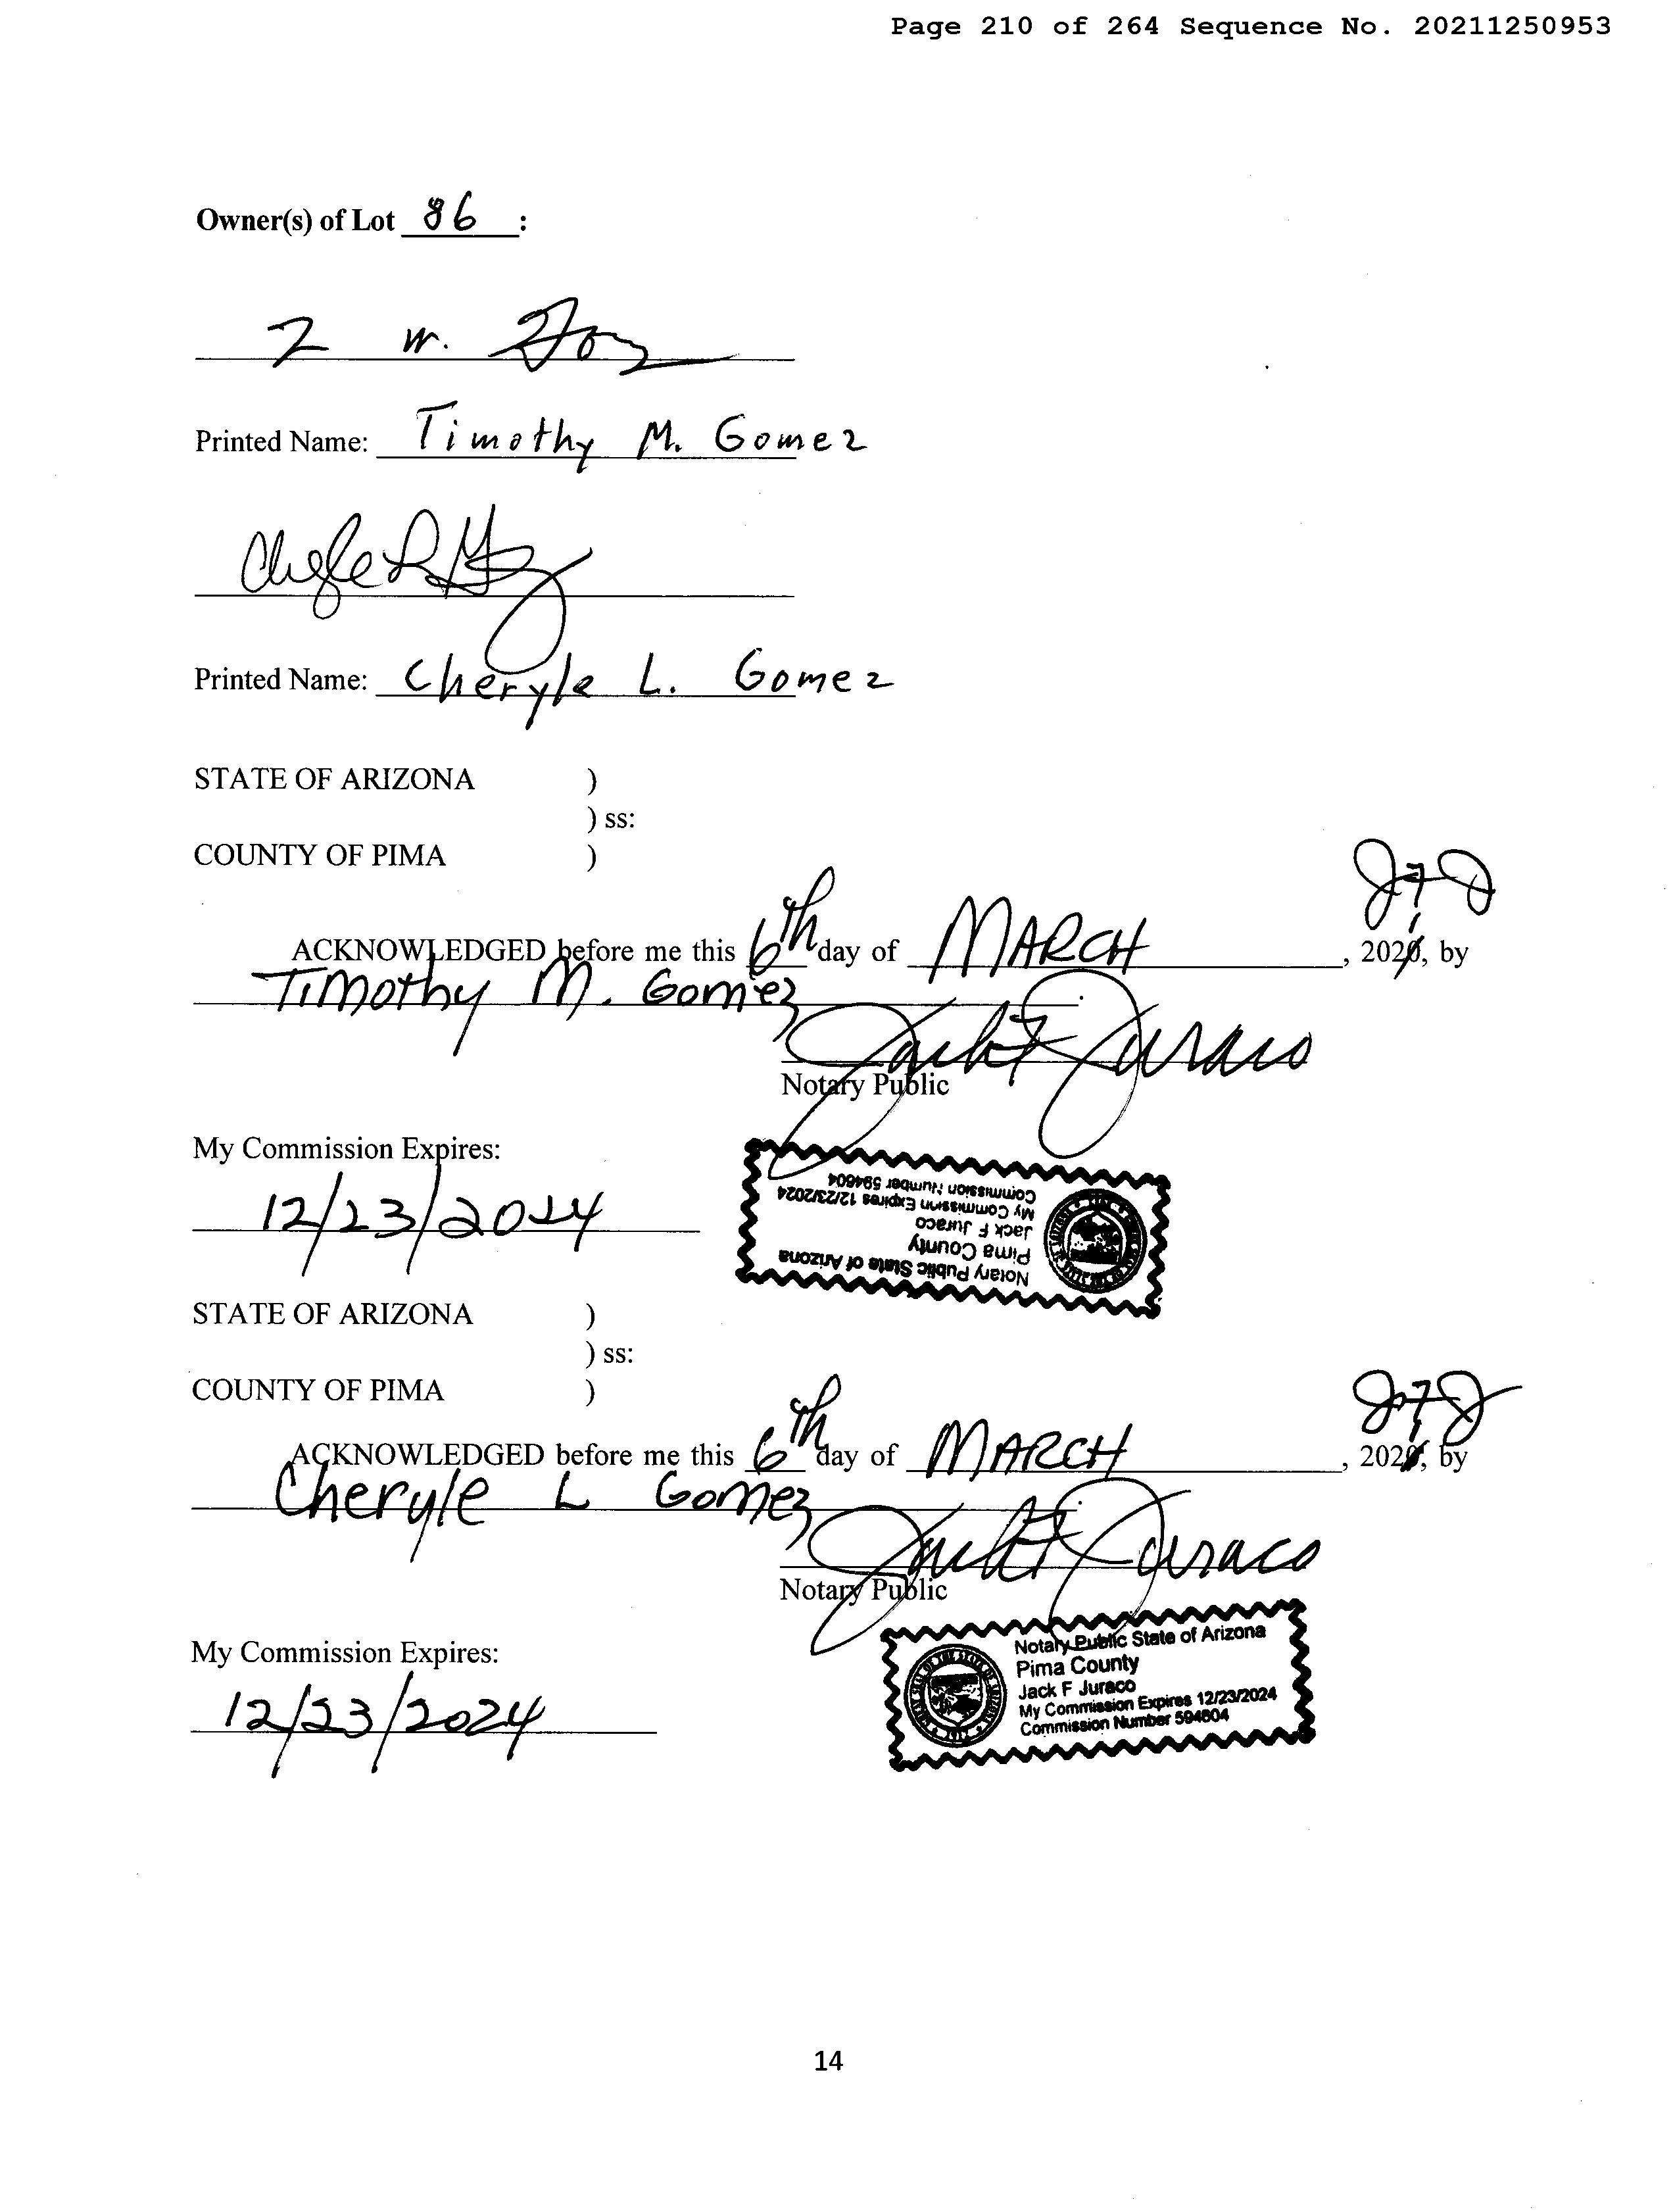 Page 210 of 264 Sequence No. 20211250953
Owner(s) of Lot 86 :
Printed Name: Timothy M. Gomez
Printed Name: Cheryle L. Gomez
STATE OF ARIZONA )
) ss:
COUNTY OF PIMA )
JFJ
ACKNOWLEDGED before me this 6th day of MARCH , 2021, by
Timothy M. Gomez
Jack F Juraco
Notary Public
My Commission Expires:
12/23/2024
Commission Number 594604
My Commission Expires 12/23/2024
Jack F Juraco
Pima County
Notary Public State of Arizona
STATE OF ARIZONA )
) ss:
COUNTY OF PIMA )
JFJ
ACKNOWLEDGED before me this 6th day of MARCH , 2021, by
Cheryle L Gomez
Jack F Juraco
Notary Public
My Commission Expires:
12/23/2024
Notary Public State of Arizona
Pima County
Jack F Juraco
My Commission Expires 12/23/2024
Commission Number 594604
14